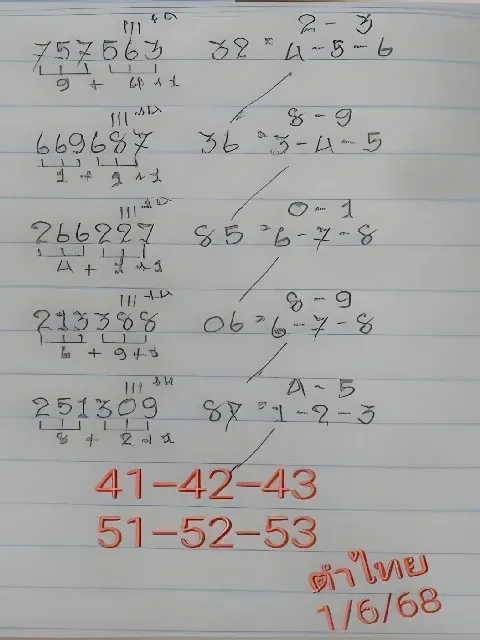 2 - 3
757563 32 = 4 - 5 - 6
9 + 4 + 1
8 - 9
669687 36 = 3 - 4 - 5
1 + 2 + 1
0 - 1
266227 85 = 6 - 7 - 8
4 + 1 + 1
8 - 9
213388 06 = 6 - 7 - 8
6 + 9 + 1
4 - 5
251309 87 = 1 - 2 - 3
8 + 2 + 1
41-42-43
51-52-53
ตำไทย
1/6/68